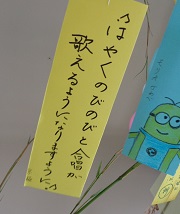 はやくのびのびと合唱が
歌えるようになりますように